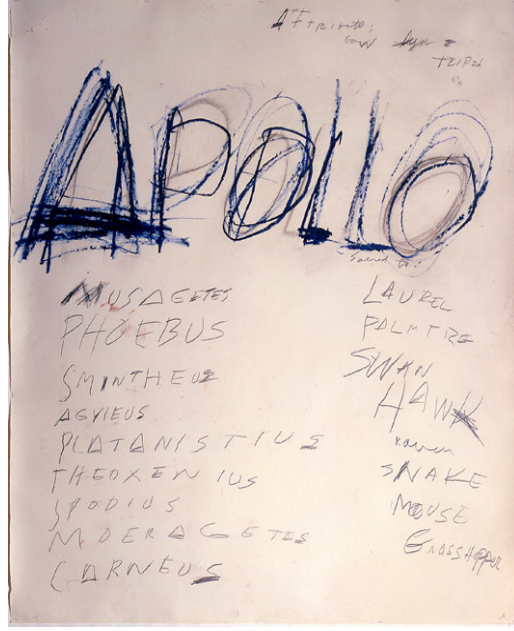 Attribute:
bow lyre &
TRIPOD
APOLLO
Sacred to:
MUSAGETES
PHOEBUS
SMINTHEUS
AGVIEUS
PLATANISTIUS
THEOXENIUS
SPODIUS
MOERAGETES
CARNEUS
LAUREL
PALM TREE
SWAN
HAWK
raven
SNAKE
MOUSE
GRASSHOPPER